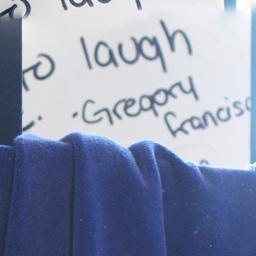 to laugh
to laugh
- Gregory
Francisc